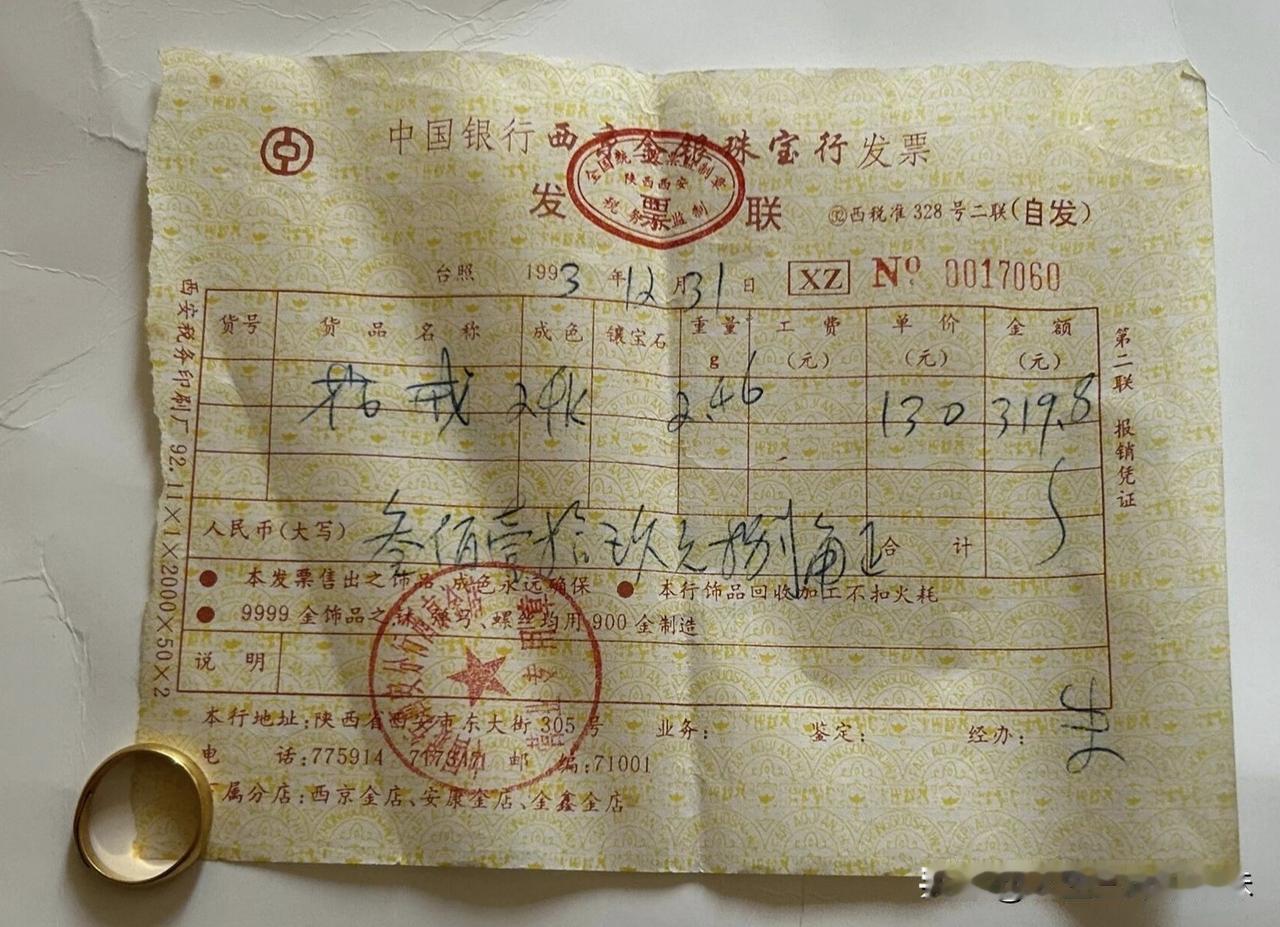 中国银行西京金银珠宝行发票
全国统一发票监制章
陕西西安
税务局监制
发票联
西税准328号二联(自发)
台照 1993年12月31日 XZ No. 0017060
货号 货品名称 成色 镶宝石 重量g 工费(元) 单价(元) 金额(元)
戒 24K 2.46 130 319.8
人民币(大写) 叁佰壹拾玖元捌角正 合计
● 本发票售出之饰品,成色永远确保 ● 本行饰品回收加工不扣火耗
● 9999金饰品之 、螺丝均用900金制造
说明
本行地址:陕西省西安市东大街305号 业务: 鉴定: 经办:
电话:775914 邮编:71001
属分店:西京金店、安康金店、金鑫金店
西安税务印刷厂 92.11×1×2000×50×2
第二联 报销凭证